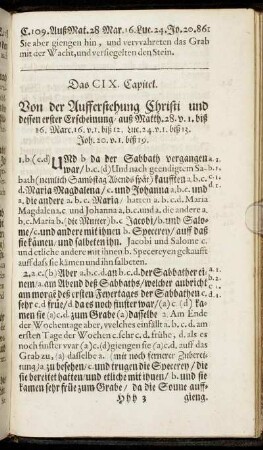 C. 109. Auß Mat. 28 Mar. 16. Luc. 24. Jo. 20. 861
Sie aber giengen hin, und verwahreten das Grab
mit der Wacht, und versiegelten den Stein.
Das CIX. Capitel.
Von der Aufferstehung Christi und
dessen erster Erscheinung / auß Matth. 28. v. 1. biß
16. Marc. 16. v. 1. biß 12. Luc. 24. v. 1. biß 13.
Joh. 20. v. 1. biß 19.
1. b (c. d) UNd b da der Sabbath vergangen
war / b. a. c. (d) Und nach geendigtem Sa-
bath (nemlich Samstag Abends spät) kaufften a. b. c.
d. Maria Magdalena / c. und Johanna a. b. c. und
a. die andere a. b. c. Maria / hatten a. b. c. d. Maria
Magdalena, c. und Johanna a. b. c. und a. die andere a. b.
c. Maria b. (die Mutter) b. c. Jacobi / b. und Salo-
me / c. und andere mit ihnen b. Specerey / auff daß
sie kämen / und salbeten ihn. Jacobi und Salome c.
und etliche andere mit ihnen b. Specereyen gekaufft
auff dass sie kämen und ihn salbeten.
2. a. c. (b) Aber a. b. c. d. an b. c. d. der Sabbather ei-
nem / a. am Abend deß Sabbaths / welcher anbricht
am morgē deß ersten Feyertages der Sabbathen c. d.
sehr c. d früe / d da es noch finster war / (a) c. (d) ka-
men sie (a) c. d. zum Grabe (a) dasselbe a. Am Ende
der Wochen age aber, welches einfällt a. b. c. d. am
ersten Tage der Wochen c. sehr c. d. frühe, d. als es
noch finster war (a) c. (d) giengen sie (a) c. d. auff das
Grab zu, (a) dasselbe a. (mit noch fernerer Zuberei-
tung /) a. zu besehen / c. und trugen die Specerey / die
sie bereitet hatten / und etliche mit ihnen / b. und sie
kamen sehr früe zum Grabe / da die Sonne auff-
Hhh 3 gieng.